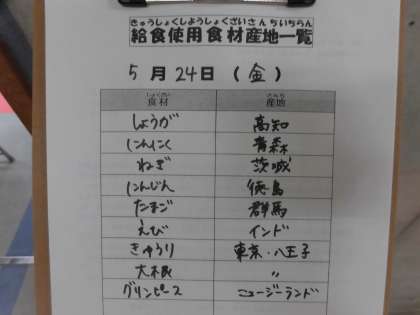 きゅうしょくしようしょくざいさんちいちらん
給食使用食材産地一覧
5月24日(金)
しょくざい さんち
食材 産地
しょうが 高知
にんにく 青森
ねぎ 茨城
にんじん 徳島
たまご 群馬
えび インド
きゅうり 東京・八王子
大根 〃
グリンピース ニュージーランド